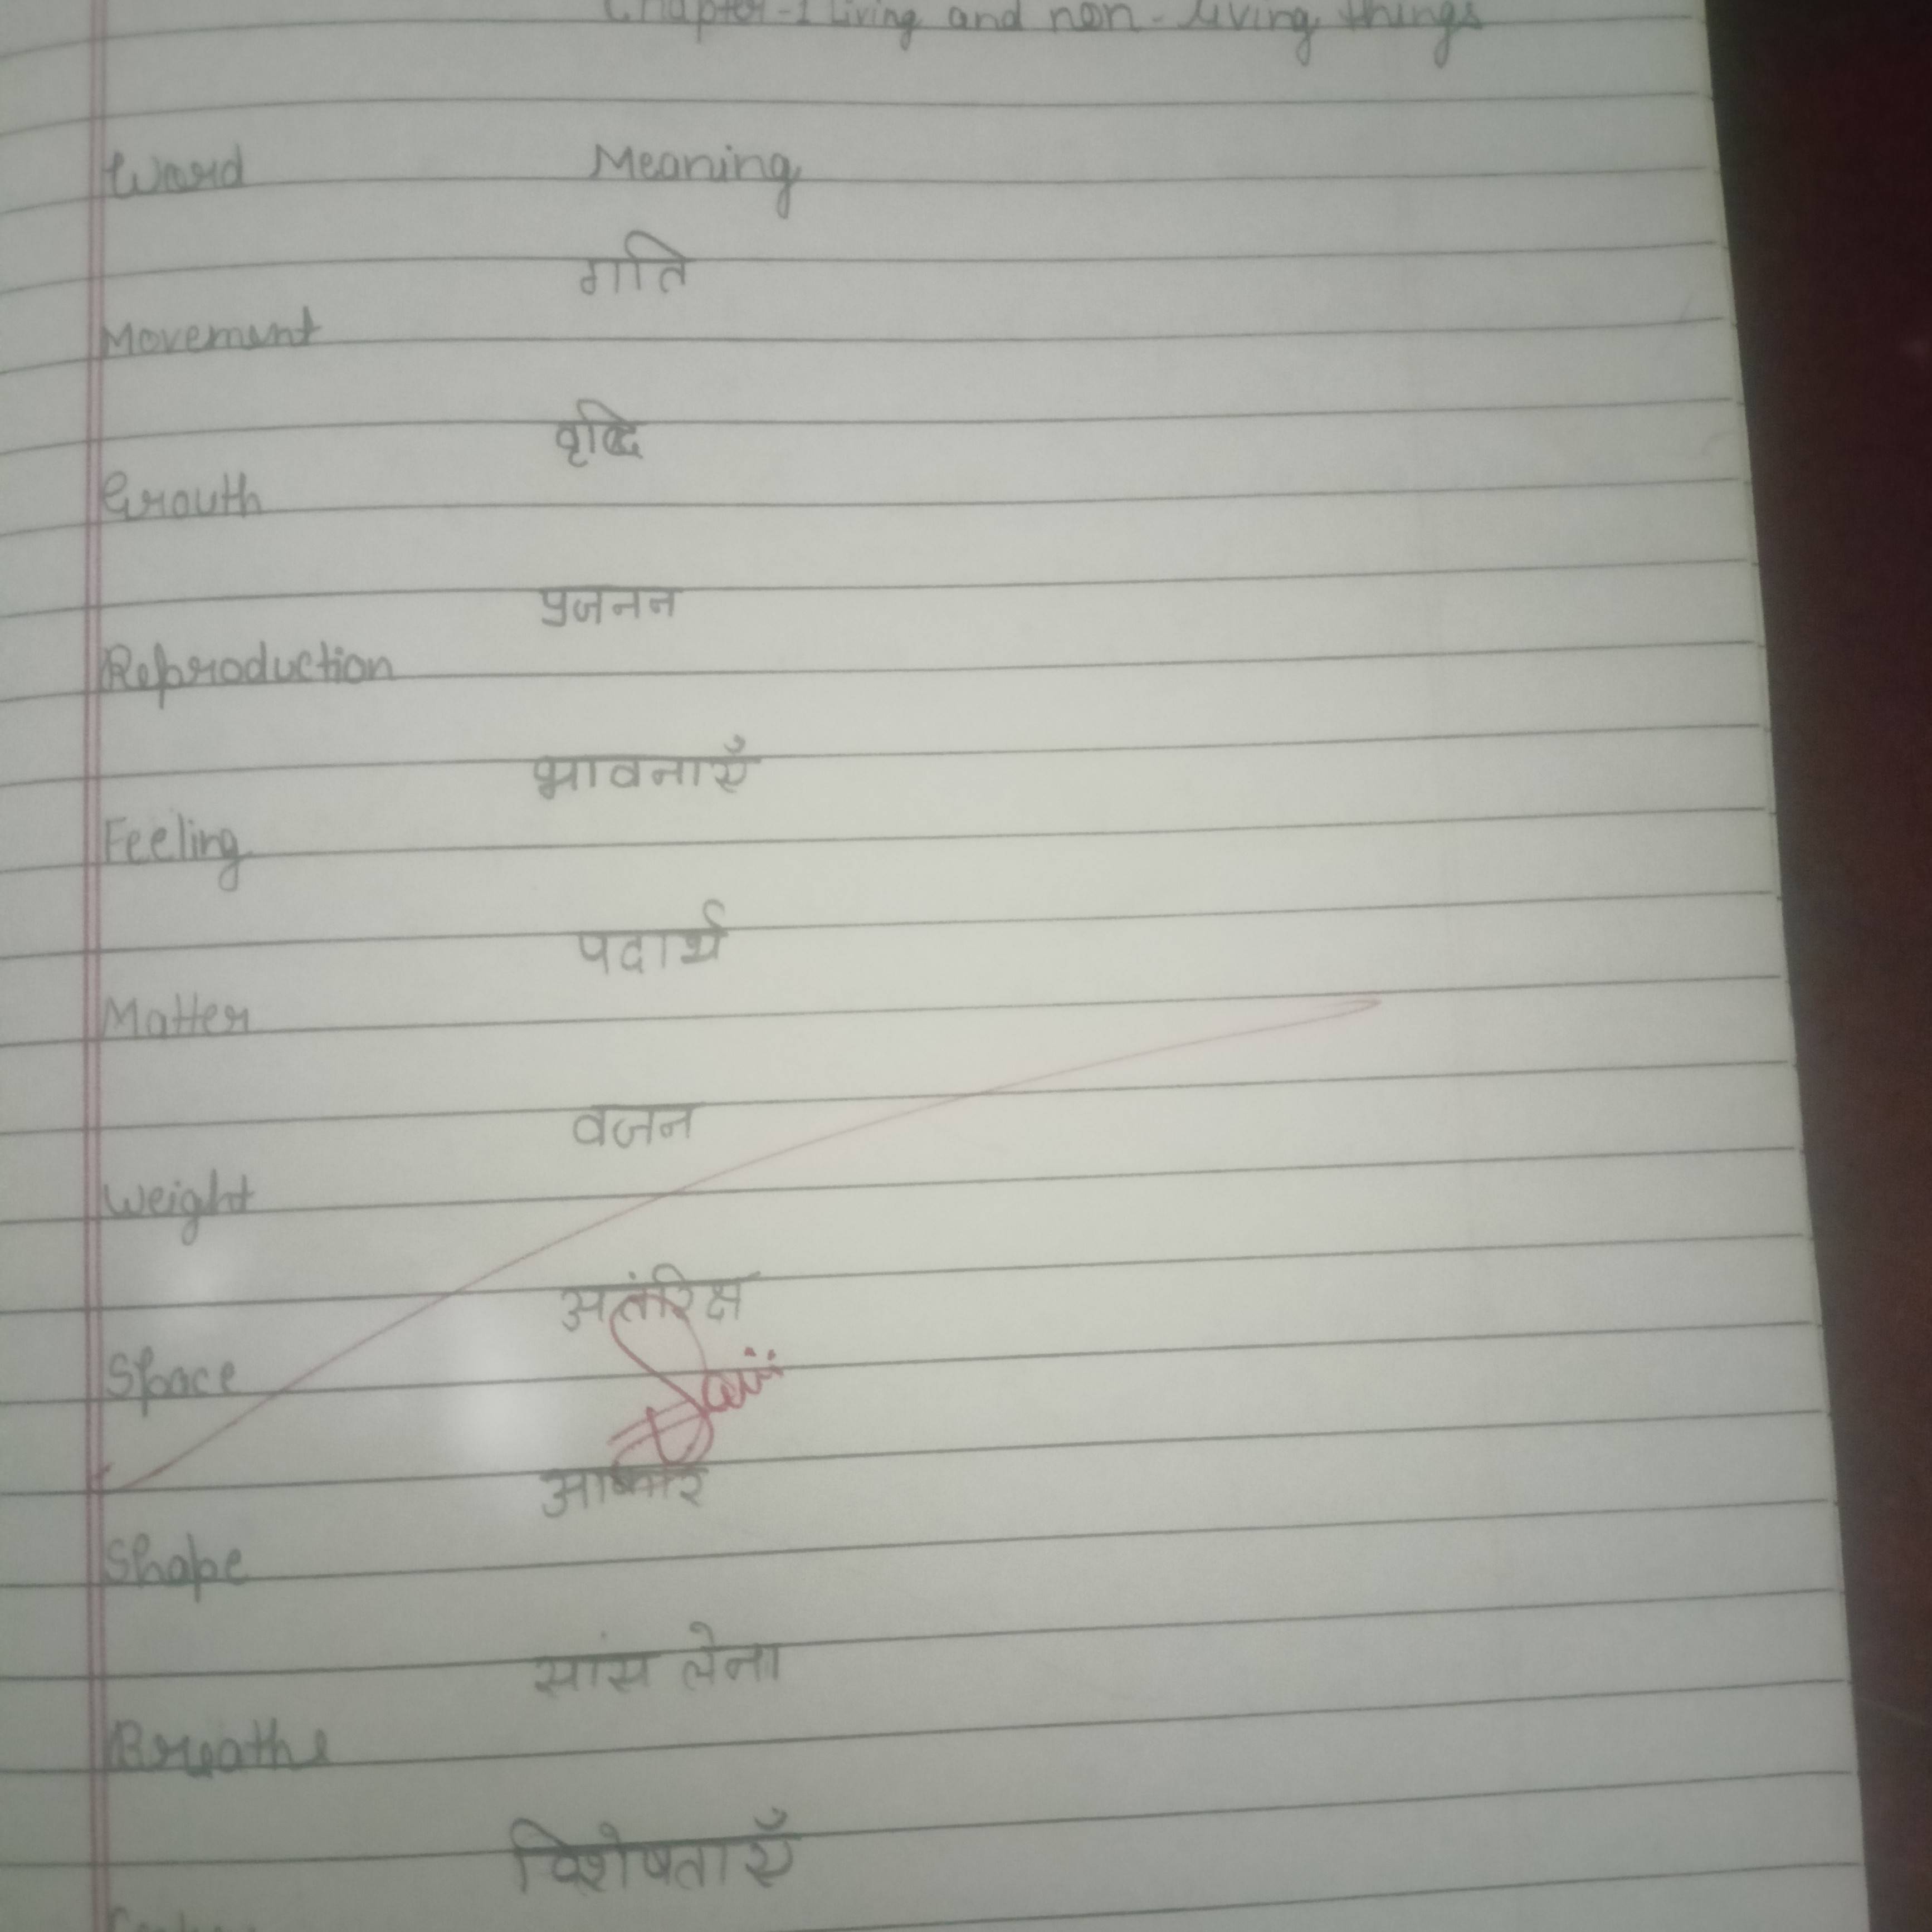 Chapter-1 Living and non-living things
Word Meaning
गति
Movement
वृद्धि
Grouth
प्रजनन
Reproduction
भावनाएँ
Feeling
पदार्थ
Matter
वजन
Weight
अतंरिक्ष
Space
आकार
Shape
सांस लेना
Breathe
विशेषताएँ